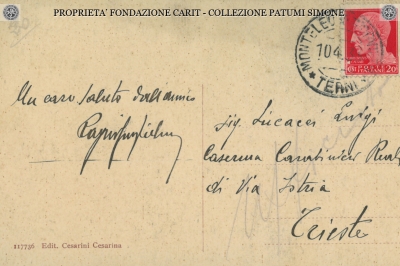 PROPRIETA' FONDAZIONE CARIT - COLLEZIONE PATUMI SIMONE
MONTELEO
104
TERNI
POSTE ITALIANE
20
Un caro saluto dall'amico
Sig. Lucacci Luigi
Caserma Carabinieri Reali
di Via Istria
Trieste
117736 Edit. Cesarini Cesarina